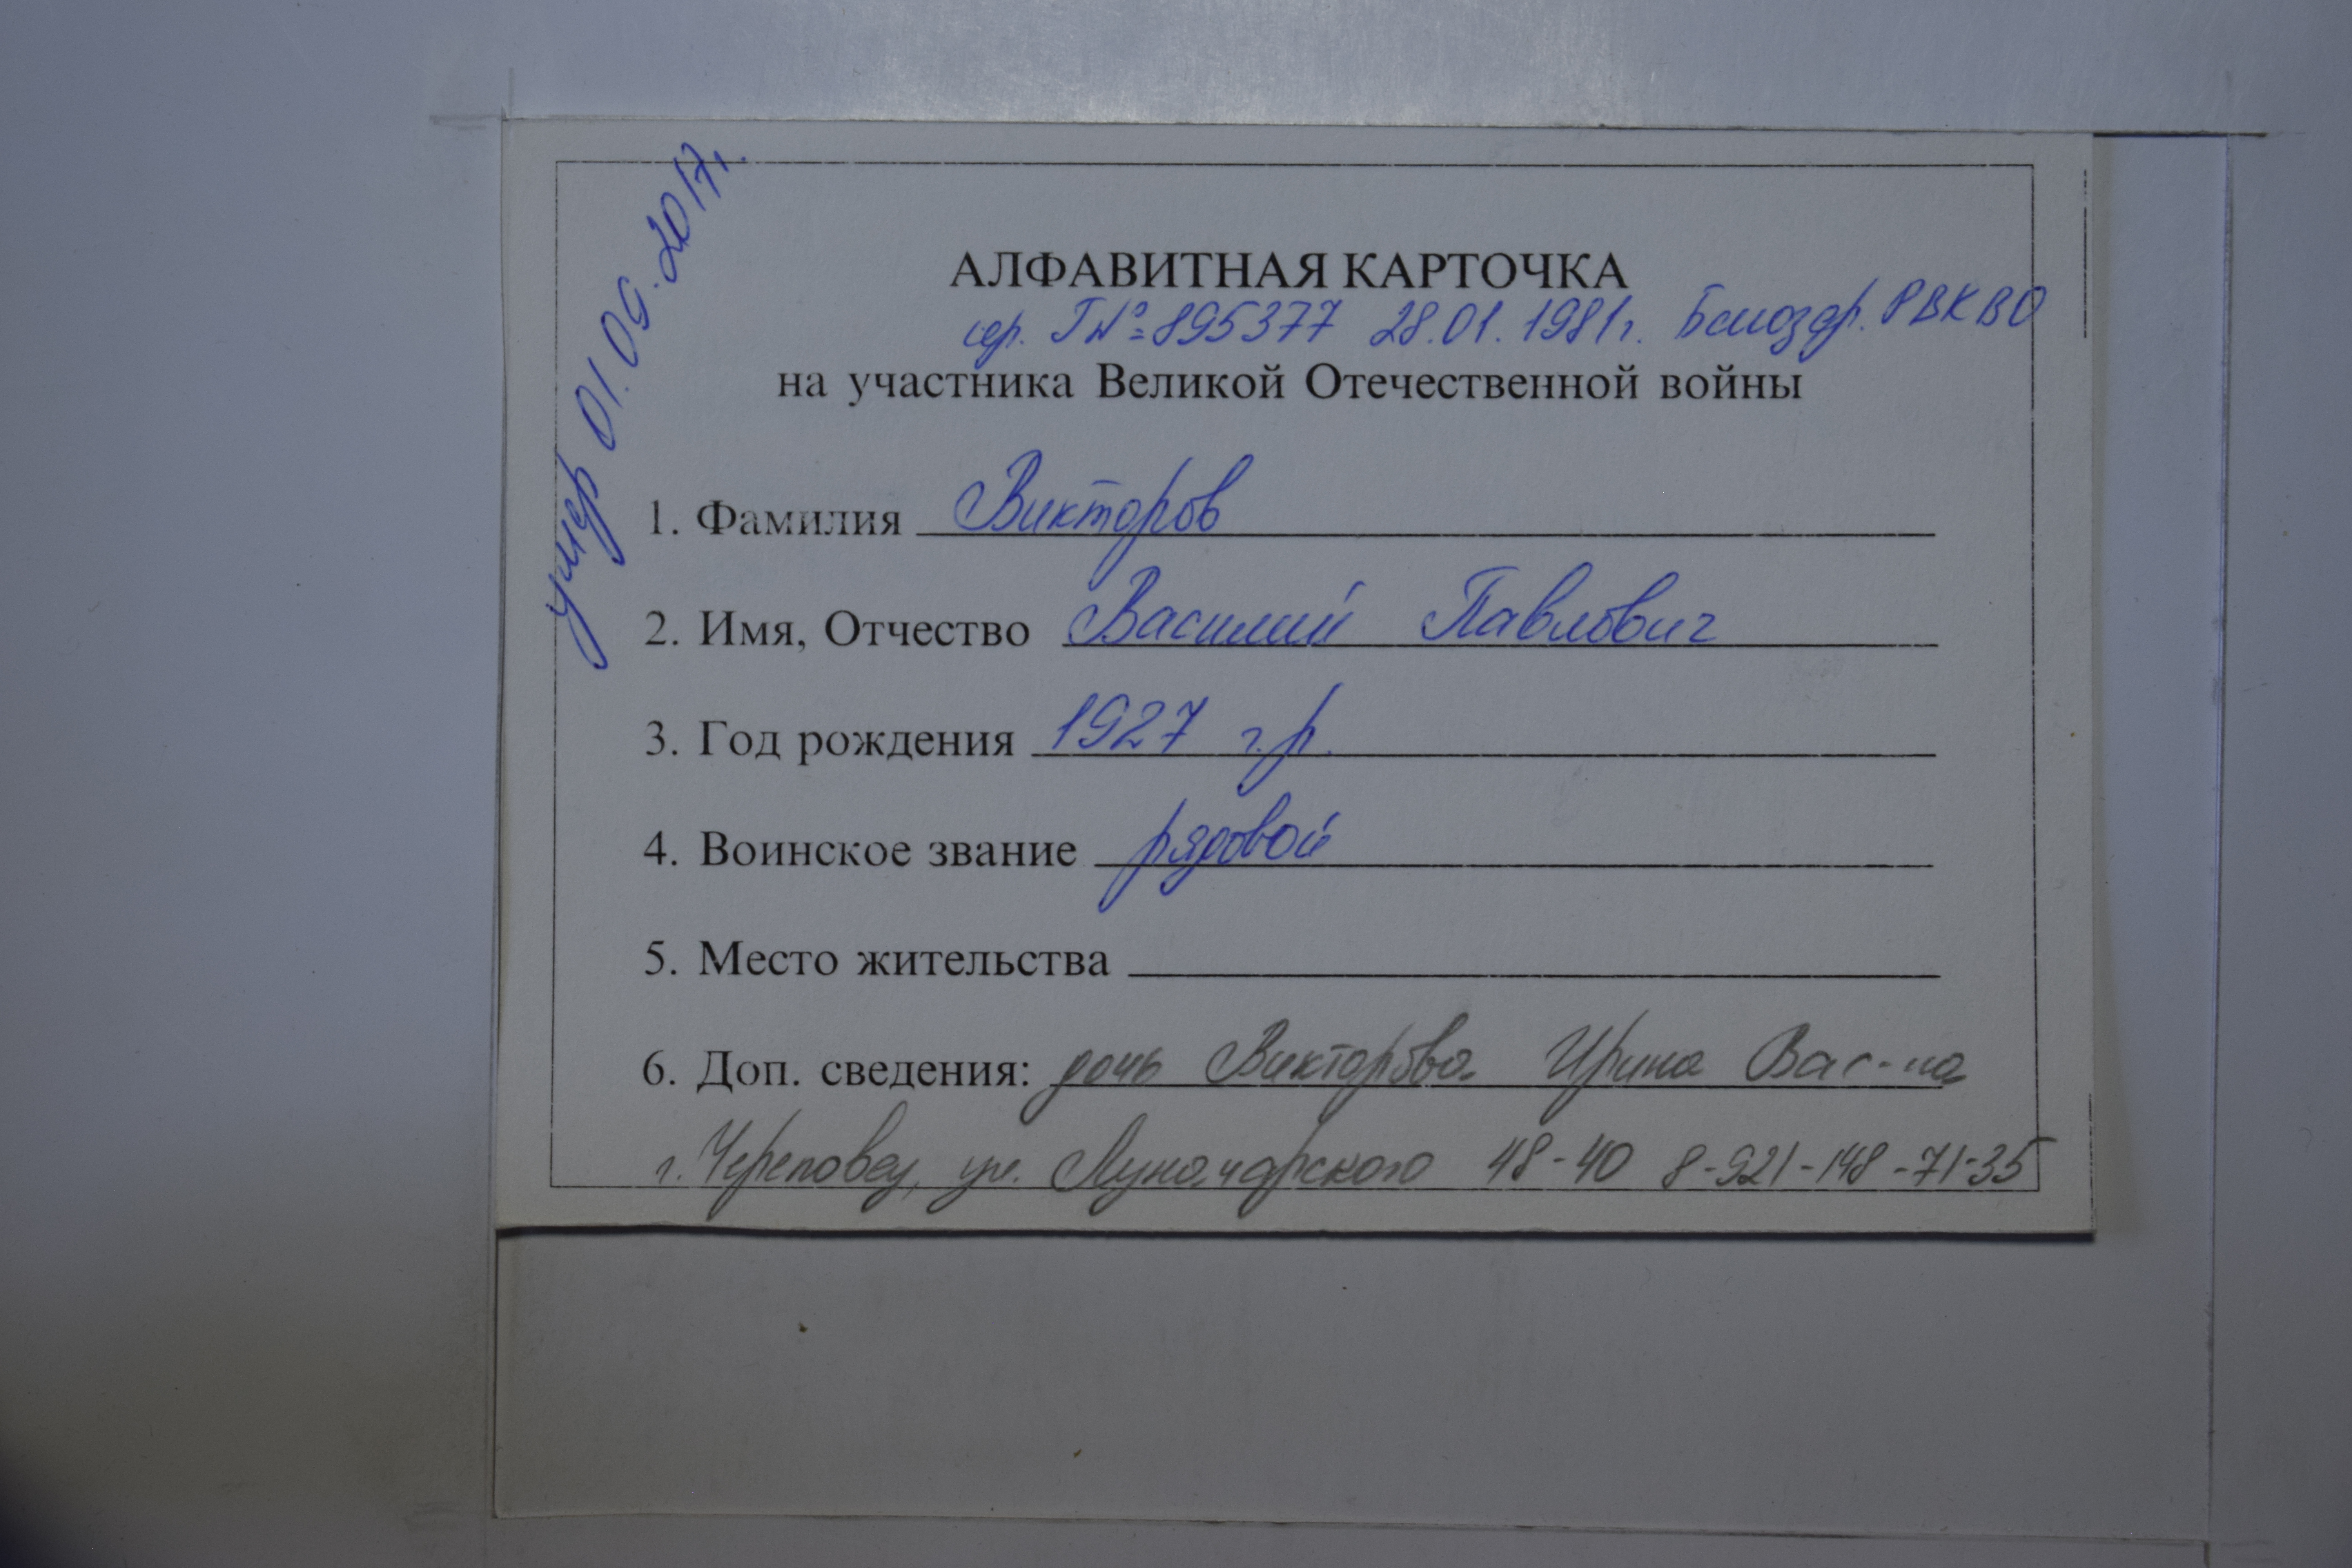 умер 01.09.2017г.
АЛФАВИТНАЯ КАРТОЧКА
сер. Г № 895377 28.01.1981г. РВК ВО
на участника Великой Отечественной войны
1. Фамилия Викторов
2. Имя, Отчество Василий Павлович
3. Год рождения 1927 г.р.
4. Воинское звание рядовой
5. Место жительства
6. Доп. сведения: дочь Викторова Ирина Вас-на
г. Череповец, ул. Луначарского 48-40 8-921-148-71-35